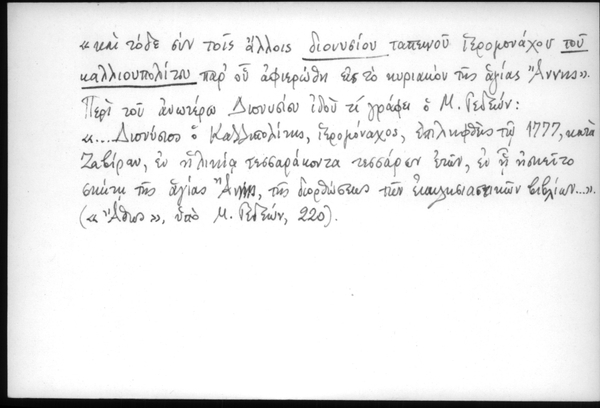 «καὶ τόδε σὺν τοῖς ἄλλοις διονυσίου ταπεινοῦ ἱερομονάχου τοῦ
καλλιουπολίτου παρ' οὗ ἀφιερώθη εἰς τὸ κυριακὸν τῆς ἁγίας Ἄννης».
Περὶ τοῦ ἀνωτέρω Διονυσίου ἰδοὺ τί γράφει ὁ Μ. Γεδεών:
«....Διονύσιος ὁ Καλλιπολίτης, ἱερομόναχος, ἐπιληφθεὶς τῷ 1777, κατὰ
Ζαβίραν, ἐν ἡλικίᾳ τεσσαράκοντα τεσσάρων ἐτῶν, ἐν ᾗ ἠσκεῖτο
σκήτῃ τῆς ἁγίας Ἄννης, τῆς διορθώσεως τῶν ἐκκλησιαστικῶν βιβλίων...».
(«Ἄθως», ὑπὸ Μ. Γεδεών, 220).